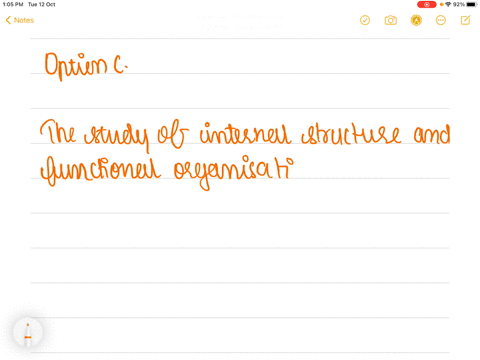 1:05 PM Tue 12 Oct
92%
Notes
Option C.
The study of internal structure and
functional organisati